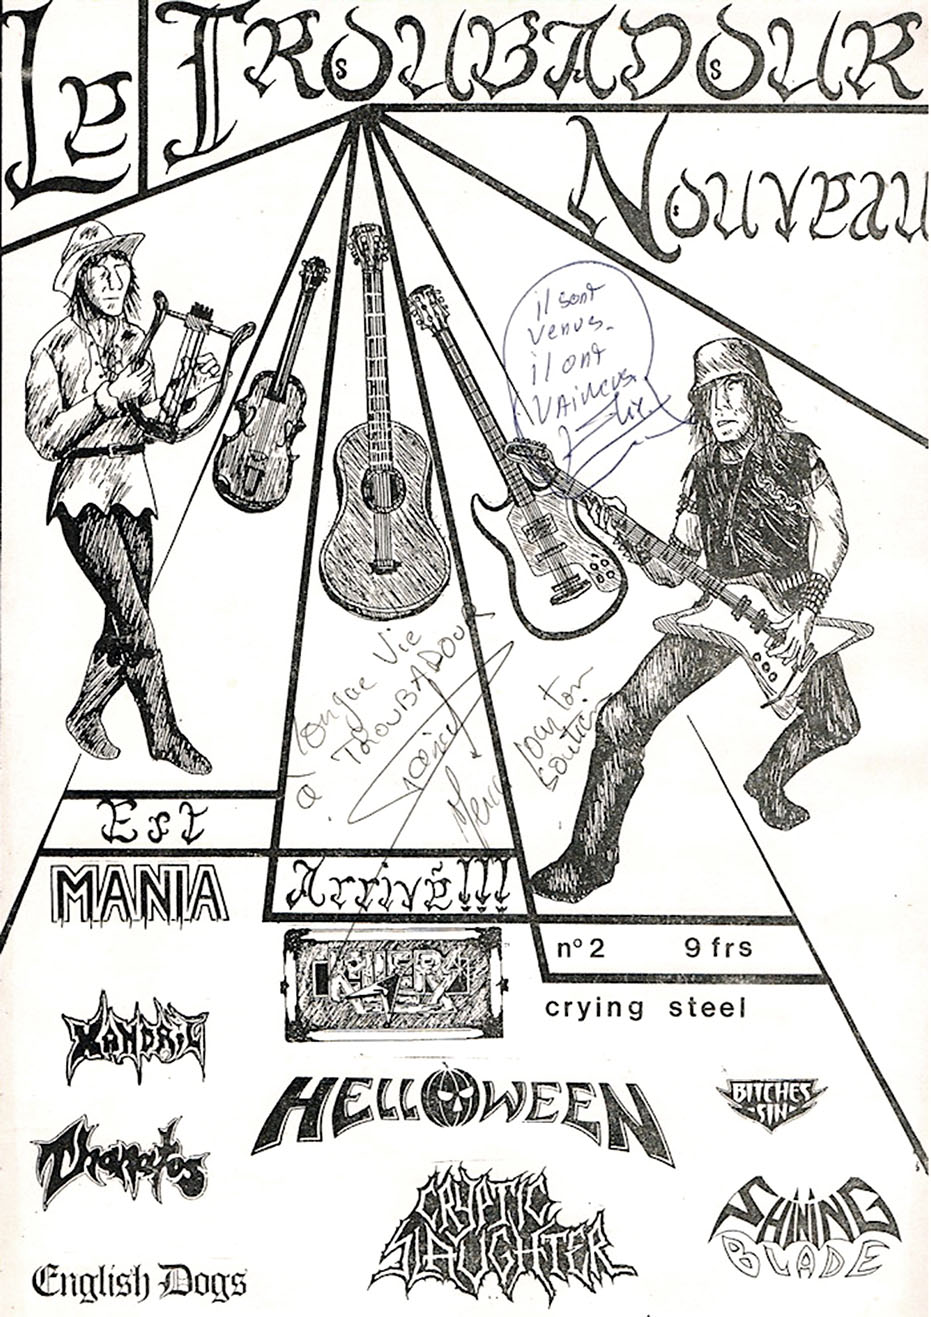 Le Troubadour
Nouveau
il sont
venus.
il ont
vaincus.
à Longue Vie
TROUBADOUR
Merci pour ton
soutien
Est
Arrivé!!!
MANIA
KILLERS
n°2 9 frs
crying steel
XANDRIL
HELLOWEEN
BITCHES
SIN
Thanatos
CRYPTIC
SLAUGHTER
SHINING
BLADE
English Dogs